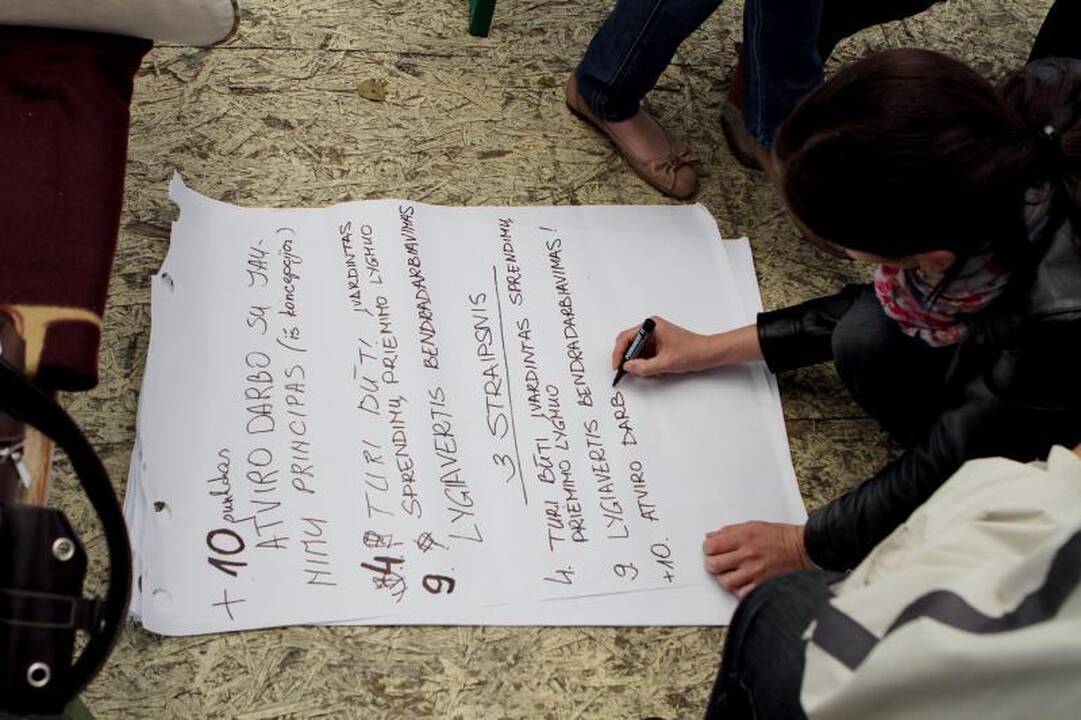 + 10 punktas
ATVIRO DARBO SU JAU-
NIMU PRINCIPAS (iš koncepcijos)
4. TURI BŪTI ĮVARDINTAS
SPRENDIMŲ PRIEMIMO LYGMUO
9. LYGIAVERTIS BENDRADARBIAVIMAS
3 STRAIPSNIS
4. TURI BŪTI ĮVARDINTAS SPRENDIMŲ
PRIEMIMO LYGMUO
9. LYGIAVERTIS BENDRADARBIAVIMAS!
+10. ATVIRO DARB